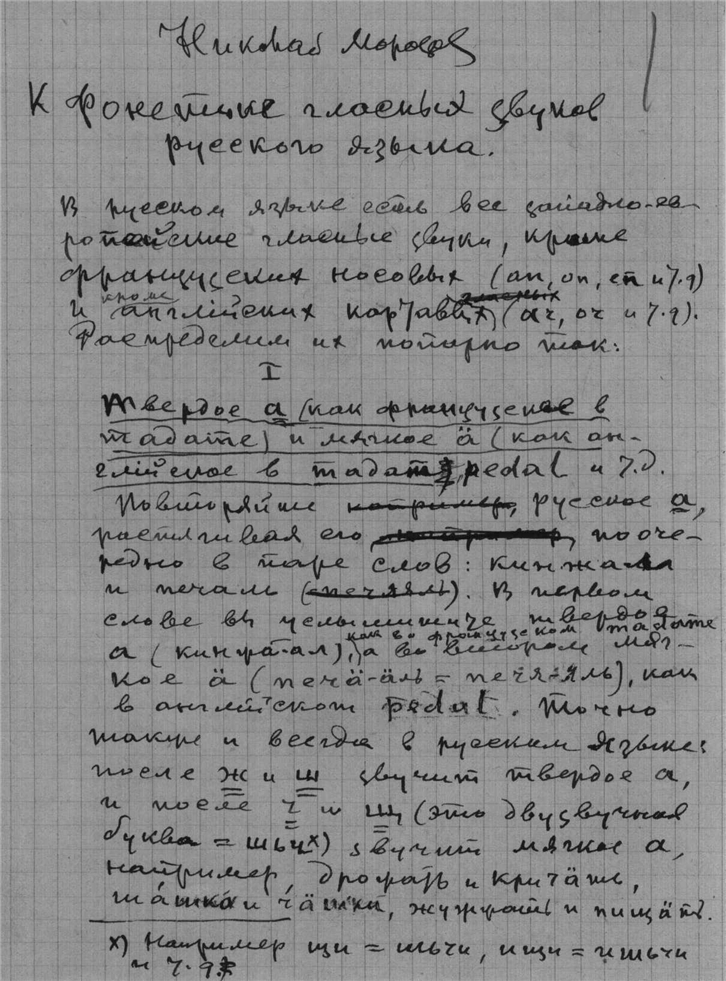 Николай Морозов
К фонетике гласных звуков
русского языка.
В русском языке есть все западно-ев-
ропейские гласные звуки, кроме
французских носовых (an, on, en и т.д)
и кроме английских картавых (ar, or и т.д).
Распределим их попарно так:
I
Твердое а (как французское в
madame) и мягкое ä (как ан-
глійское в madam, pedal и т.д.
Повторяйте например, русское а,
растягивая его например, пооче-
редно в паре слов: кинжал
и печаль (печяль). В первом
слове вы услышите твердое
а (кинжа-ал), как во французском madame а во втором мяг-
кое ä (печä-äль = печя-яль), как
в англійском pedal. Точно
также и всегда в русским языке:
после ж и ш звучит твердое а,
и после ч и щ (это двузвучная
буква = шьч х) звучит мягкое а,
например, дрожать и кричäть,
шáшка и чäшки, жужжать и пищäть.
х) Например щи = шьчи, ищи = ишьчи
и т.д.